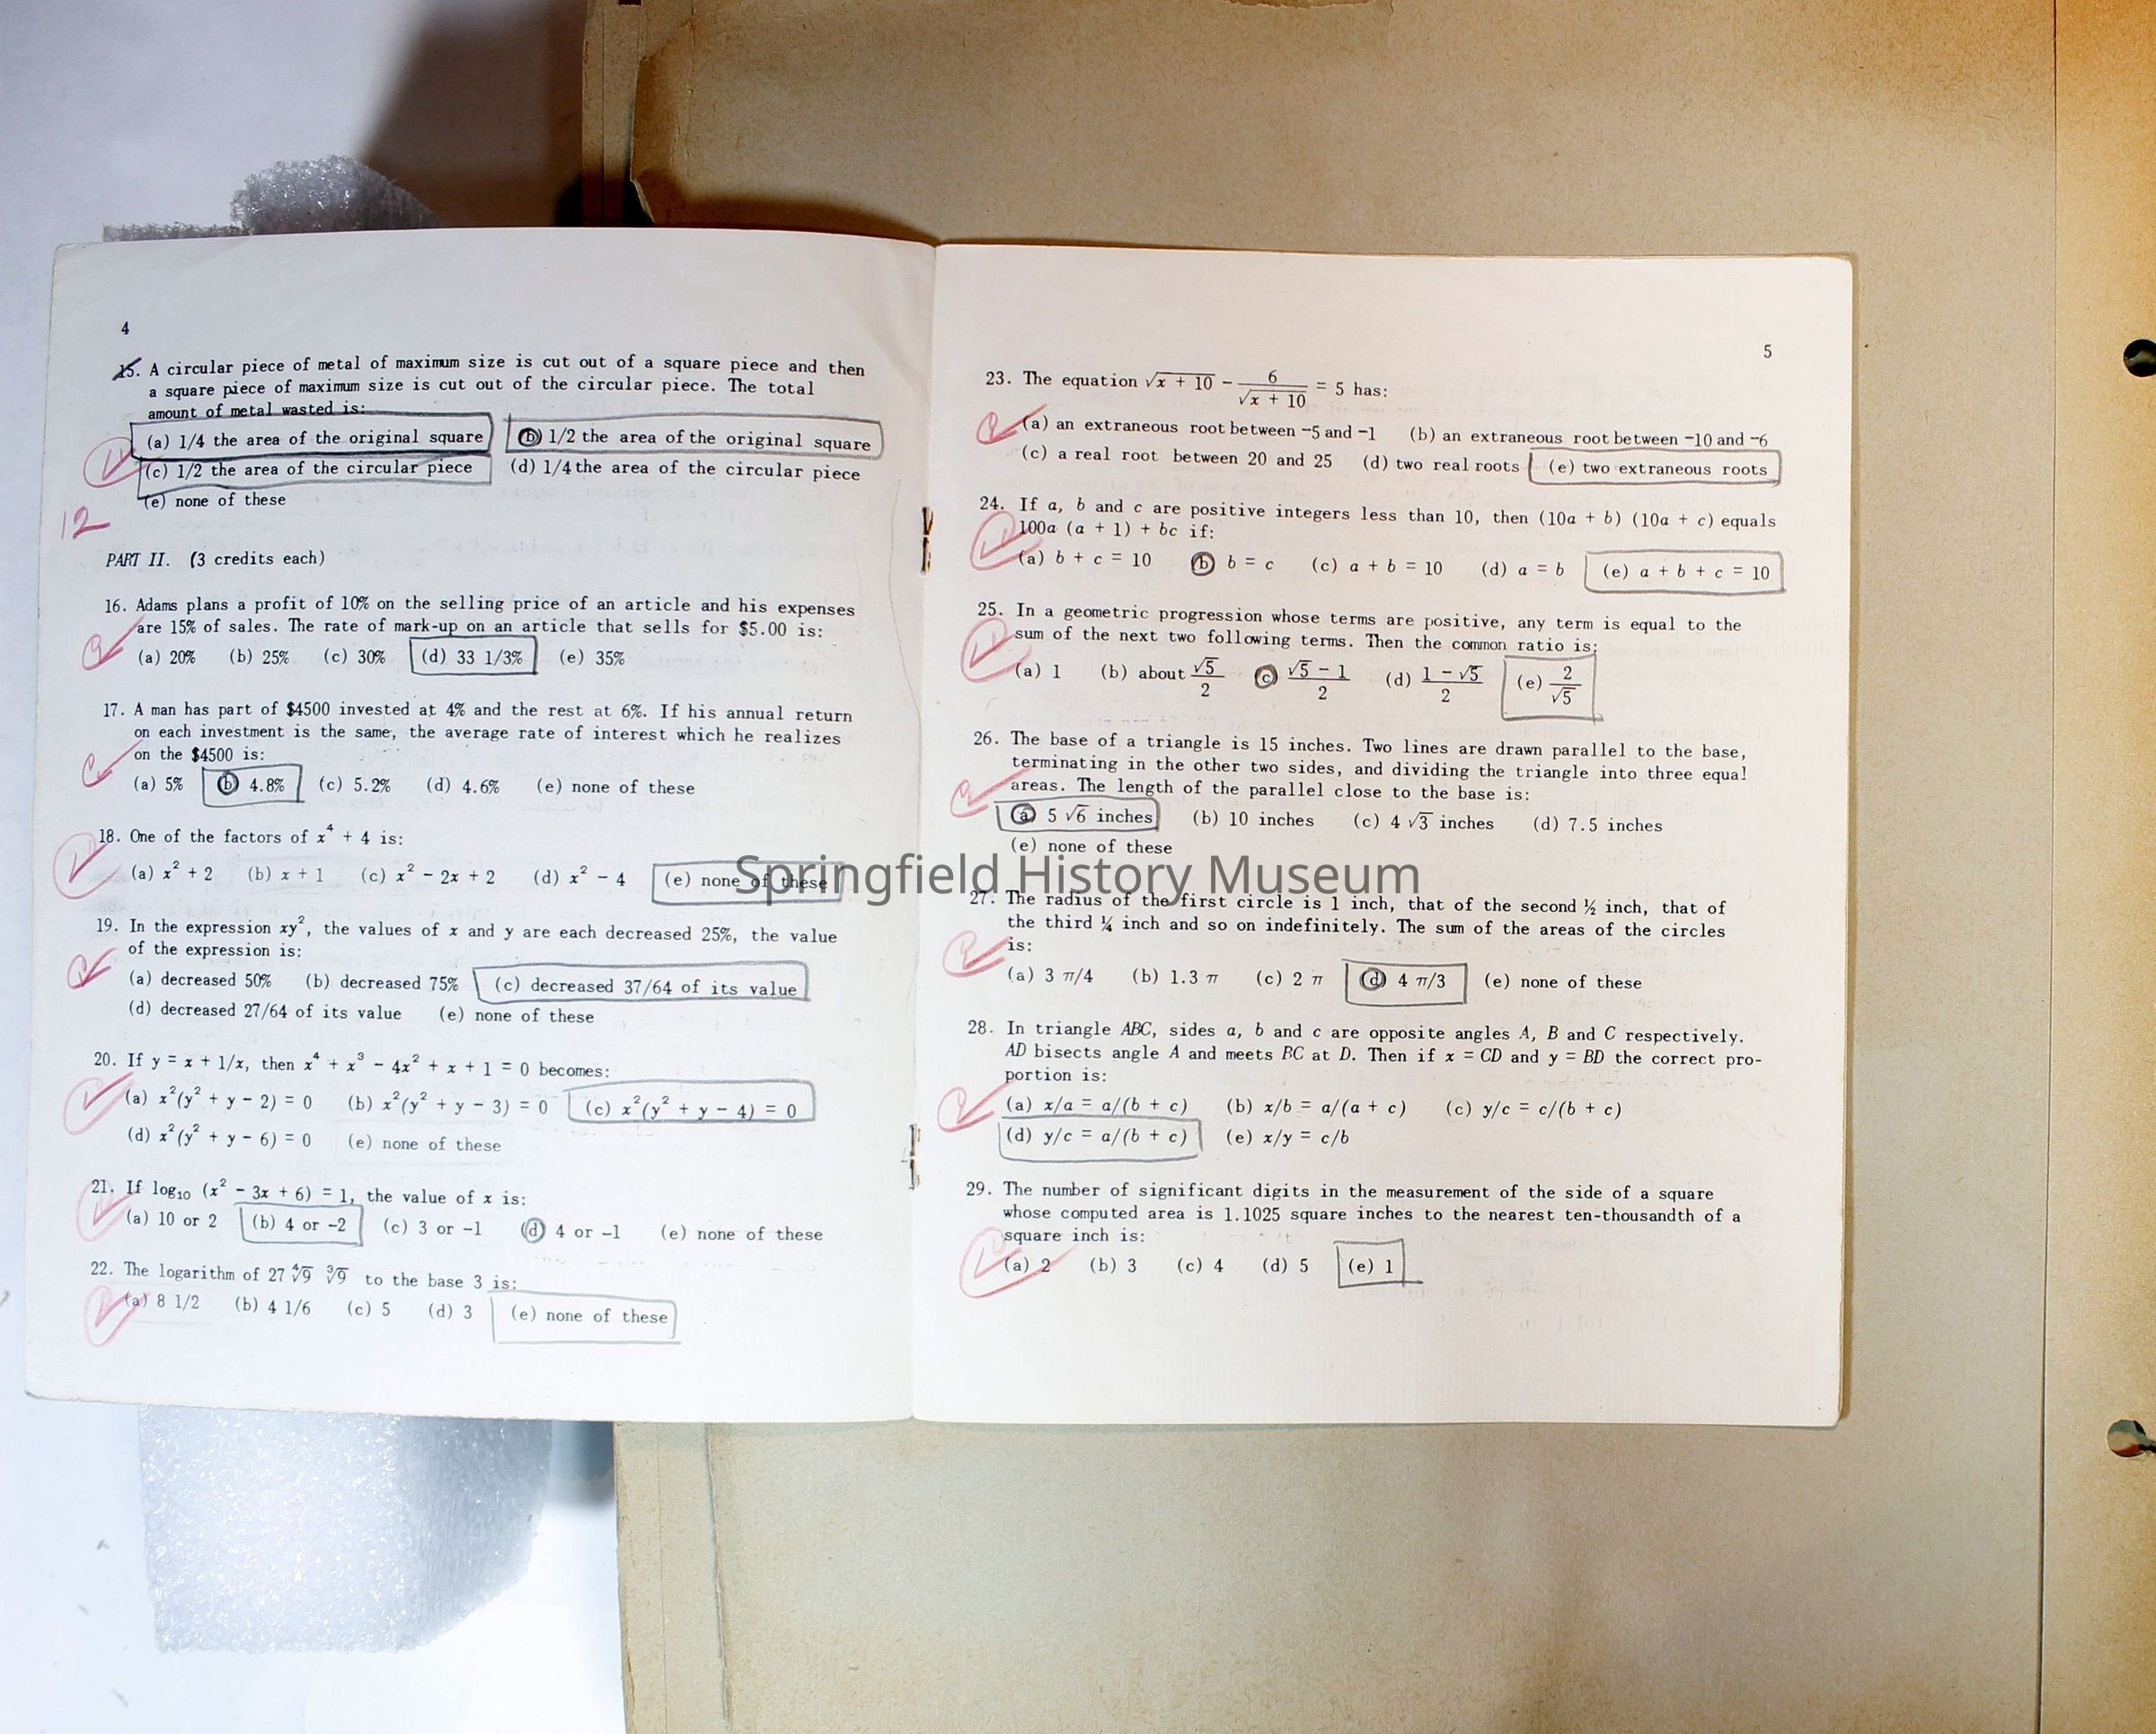 4
15. A circular piece of metal of maximum size is cut out of a square piece and then
a square piece of maximum size is cut out of the circular piece. The total
amount of metal wasted is:
(a) 1/4 the area of the original square (b) 1/2 the area of the original square
(c) 1/2 the area of the circular piece (d) 1/4 the area of the circular piece
(e) none of these
12
PART II. (3 credits each)
16. Adams plans a profit of 10% on the selling price of an article and his expenses
are 15% of sales. The rate of mark-up on an article that sells for $5.00 is:
(a) 20% (b) 25% (c) 30% (d) 33 1/3% (e) 35%
17. A man has part of $4500 invested at 4% and the rest at 6%. If his annual return
on each investment is the same, the average rate of interest which he realizes
on the $4500 is:
(a) 5% (b) 4.8% (c) 5.2% (d) 4.6% (e) none of these
18. One of the factors of x⁴ + 4 is:
(a) x² + 2 (b) x + 1 (c) x² − 2x + 2 (d) x² − 4 (e) none of these
19. In the expression xy², the values of x and y are each decreased 25%, the value
of the expression is:
(a) decreased 50% (b) decreased 75% (c) decreased 37/64 of its value
(d) decreased 27/64 of its value (e) none of these
20. If y = x + 1/x, then x⁴ + x³ − 4x² + x + 1 = 0 becomes:
(a) x²(y² + y − 2) = 0 (b) x²(y² + y − 3) = 0 (c) x²(y² + y − 4) = 0
(d) x²(y² + y − 6) = 0 (e) none of these
21. If log₁₀ (x² − 3x + 6) = 1, the value of x is:
(a) 10 or 2 (b) 4 or −2 (c) 3 or −1 (d) 4 or −1 (e) none of these
22. The logarithm of 27 ∜9 ∛9 to the base 3 is:
(a) 8 1/2 (b) 4 1/6 (c) 5 (d) 3 (e) none of these
5
23. The equation √(x + 10) − 6/√(x + 10) = 5 has:
(a) an extraneous root between −5 and −1 (b) an extraneous root between −10 and −6
(c) a real root between 20 and 25 (d) two real roots (e) two extraneous roots
24. If a, b and c are positive integers less than 10, then (10a + b) (10a + c) equals
100a (a + 1) + bc if:
(a) b + c = 10 (b) b = c (c) a + b = 10 (d) a = b (e) a + b + c = 10
25. In a geometric progression whose terms are positive, any term is equal to the
sum of the next two following terms. Then the common ratio is:
(a) 1 (b) about √5/2 (c) (√5 − 1)/2 (d) (1 − √5)/2 (e) 2/√5
26. The base of a triangle is 15 inches. Two lines are drawn parallel to the base,
terminating in the other two sides, and dividing the triangle into three equal
areas. The length of the parallel close to the base is:
(a) 5 √6 inches (b) 10 inches (c) 4 √3 inches (d) 7.5 inches
(e) none of these
27. The radius of the first circle is 1 inch, that of the second ½ inch, that of
the third ¼ inch and so on indefinitely. The sum of the areas of the circles
is:
(a) 3 π/4 (b) 1.3 π (c) 2 π (d) 4 π/3 (e) none of these
28. In triangle ABC, sides a, b and c are opposite angles A, B and C respectively.
AD bisects angle A and meets BC at D. Then if x = CD and y = BD the correct pro-
portion is:
(a) x/a = a/(b + c) (b) x/b = a/(a + c) (c) y/c = c/(b + c)
(d) y/c = a/(b + c) (e) x/y = c/b
29. The number of significant digits in the measurement of the side of a square
whose computed area is 1.1025 square inches to the nearest ten-thousandth of a
square inch is:
(a) 2 (b) 3 (c) 4 (d) 5 (e) 1
Springfield History Museum